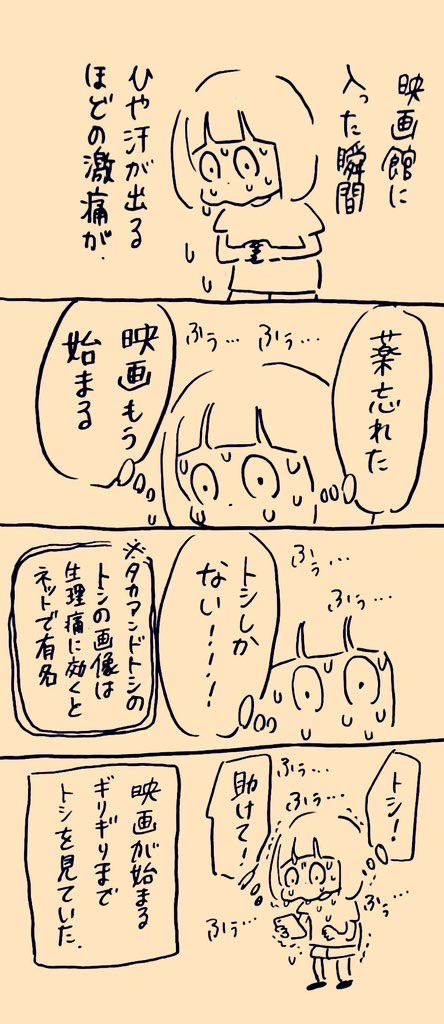 映画館に
入った瞬間
ひや汗が出る
ほどの激痛が.
薬忘れた
ふぅ… ふぅ…
映画もう
始まる
ふぅ…
ふぅ…
トシしか
ない!!!!
※タカアンドトシの
トシの画像は
生理痛に効くと
ネットで有名
トシ!
ふぅ…
ふぅ…
助けて!
ふぅ…
ふぅ…
映画が始まる
ギリギリまで
トシを見ていた.